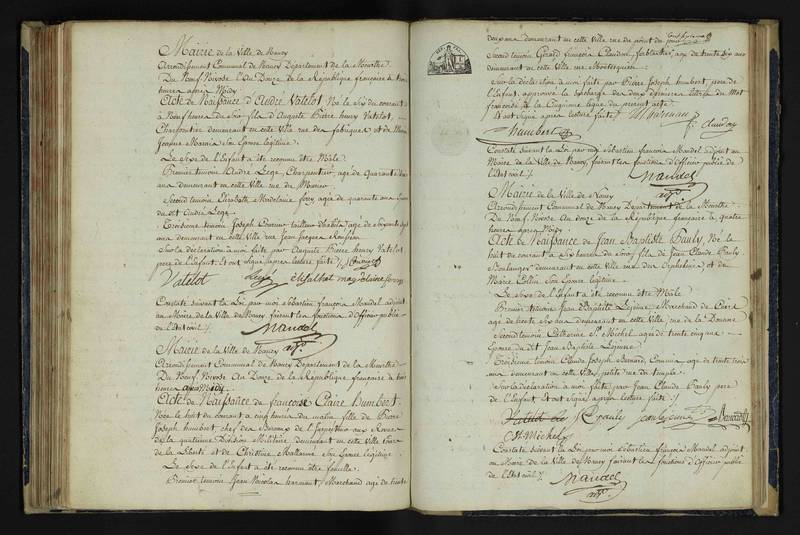 Mairie de la Ville de Nancy
Arrondissement Communal de Nancy Département de la Meurthe
Du Neuf Nivose An Douze de la République française à trois
heures après Midy
Acte de Naissance d'André Vatelot, Né le Six du courant
à Neuf heures du Soir fils d'Auguste Pierre henry Vatelot,
Charpentier demeurant en cette Ville rue des fabriques et de Marie
Jeanne son Epouse légitime
Le Sexe de l'Enfant a été reconnu être Mâle
Premier témoin André Lege, Charpentier, agé de Quarante
ans demeurant en cette Ville rue du
Second témoin Elizabeth Madelaine agée de quarante ans
du dit André Lege
Troisieme témoin Joseph tailleur d'habits, agé de Soixante
ans demeurant en cette Ville rue Jean Jacques Rousseau
Sur la déclaration à moi faite par Auguste Pierre henry Vatelot
pere de l'Enfant. Et ont signé après lecture faite
Vatelot Lege
Constaté suivant la Loi, par moi sébastien françois Mandel adjoint
au Maire de la Ville de Nancy, faisant les fonctions d'Officier public
de l'Etat civil
Mandel
Mairie de la Ville de Nancy
Arrondissement Communal de Nancy Département de la Meurthe
Du Neuf Nivose An Douze de la République française à trois
heures après Midy
Acte de Naissance de françoise Claire Humbert,
Née le huit du courant à cinq heures du matin fille de Pierre
Joseph humbert chef des Bureaux de l'Inspection aux Revues
de la quatrieme Division Militaire demeurant en cette Ville
de la Liberté et de Christine Mallarme son Epouse légitime
Le Sexe de l'Enfant a été reconnu être femelle
Premier témoin Jean Nicolas harmant, Marchand agé de trente
deux ans demeurant en cette Ville rue du point du jour
Second témoin Gérard françois Claudon, ferblantier, agé de trente six ans
demeurant en cette Ville rue Montesquieu
Sur la déclaration à moi faite par Pierre Joseph humbert, pere de
l'Enfant, approuvé la surcharge des deux dernieres lettres du Mot
françoise à la Cinquieme ligne du present acte
Et ont signé après lecture faite
Humbert
Constaté suivant la Loi par moi sébastien françois Mandel adjoint au
Maire de la Ville de Nancy, faisant les fonctions d'Officier public de
l'Etat civil
Mandel
Mairie de la Ville de Nancy
Arrondissement Communal de Nancy Département de la Meurthe
Du Neuf Nivose An douze de la République française à quatre
heures après Midy
Acte de Naissance de Jean Baptiste Pauly, Né le
huit du courant à Six heures du Soir, fils de Jean Claude Pauly,
Boulanger demeurant en cette Ville rue des Orphelines et de
Marie Collin son Epouse légitime
Le Sexe de l'Enfant a été reconnu être Mâle
Premier témoin Jean Baptiste Lejeune Marchand de
agé de trente Six ans demeurant en cette Ville rue de la Douane
Second témoin Catherine St Michel agée de trente cinq ans
Epouse du dit Jean Baptiste Lejeune
Troisieme témoin Claude Joseph Bernard, Commis, agé de trente trois
ans demeurant en cette Ville, petite rue du temple
Sur la déclaration à moi faite par Jean Claude Pauly pere
de l'Enfant Et ont Signé, après lecture faite
Pauly
St Michel
Constaté suivant la Loi par moi sébastien françois Mandel adjoint
au Maire de la Ville de Nancy faisant les fonctions d'Officier public
de l'Etat civil
Mandel